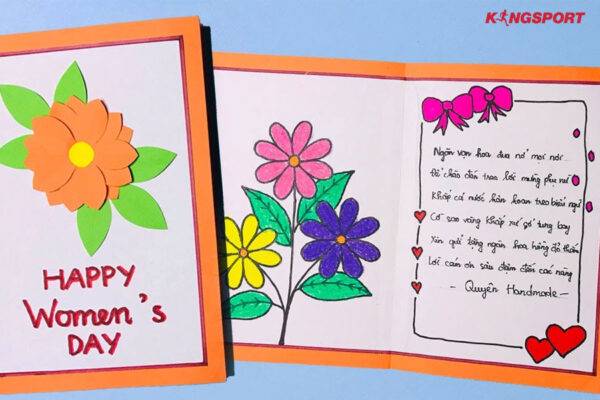 KINGSPORT
HAPPY
Women's
DAY
Ngàn vạn hoa đua nở mọi nơi
Để chào đón trao lời mừng phụ nữ
Khắp cả nước hân hoan treo biểu ngữ
Cờ sao vàng khắp xứ sở tung bay
Xin gửi tặng ngàn hoa hồng đỏ thắm
Lời cảm ơn sâu đậm đến các nàng
- Quyên Handmade -